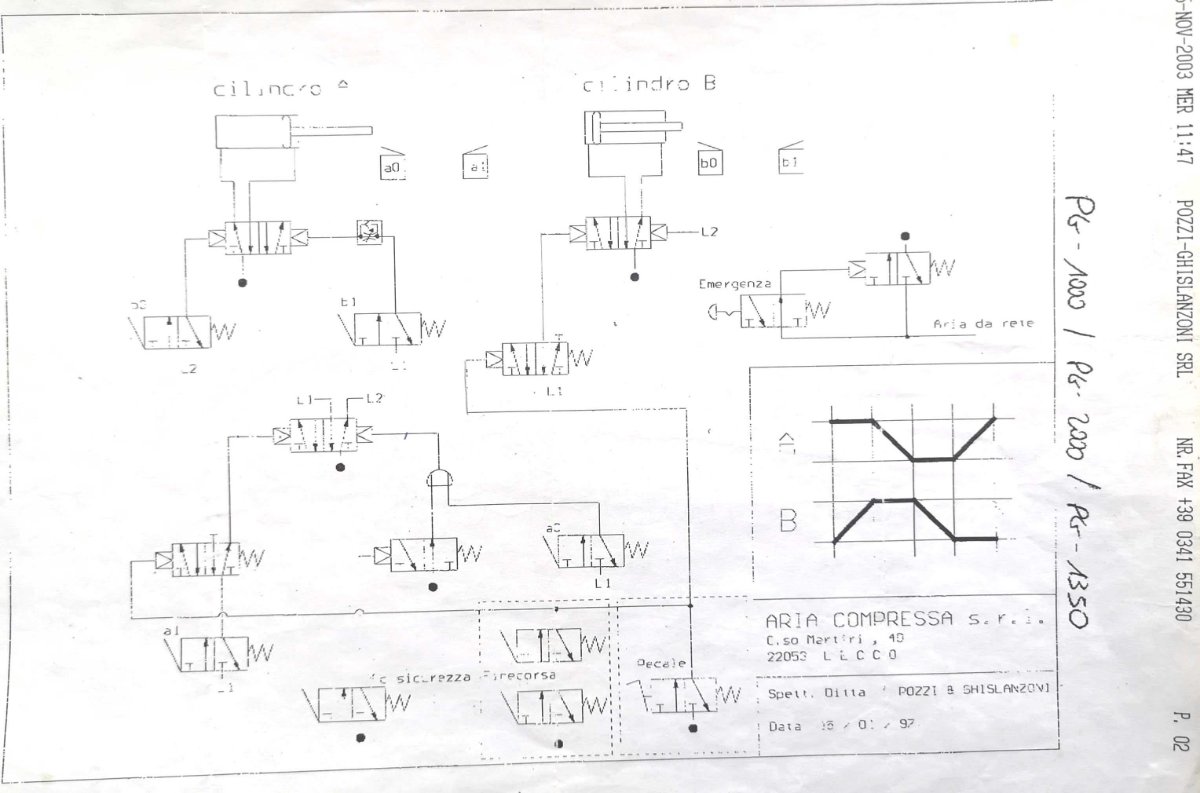 cilindro A
cilindro B
a0
a1
b0
b1
L2
Emergenza
Aria da rete
b0
b1
L2
L1
L1
L1
L2
A
B
a0
L1
a1
L1
fc sicurezza
Finecorsa
Pedale
ARIA COMPRESSA s.r.l.
C.so Martiri , 49
22053 L E C C O
Spett. Ditta POZZI & GHISLANZONI
Data / 01 / 97
PG - 1000 / PG - 2000 / PG - 1350
-NOV-2003 MER 11:47 POZZI-GHISLANZONI SRL NR. FAX +39 0341 551430 P. 02